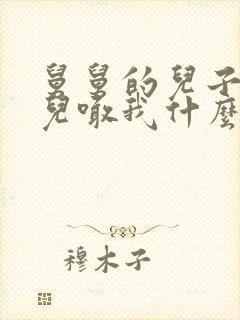 舅舅的兒子
兒噉我什麼
穆木子